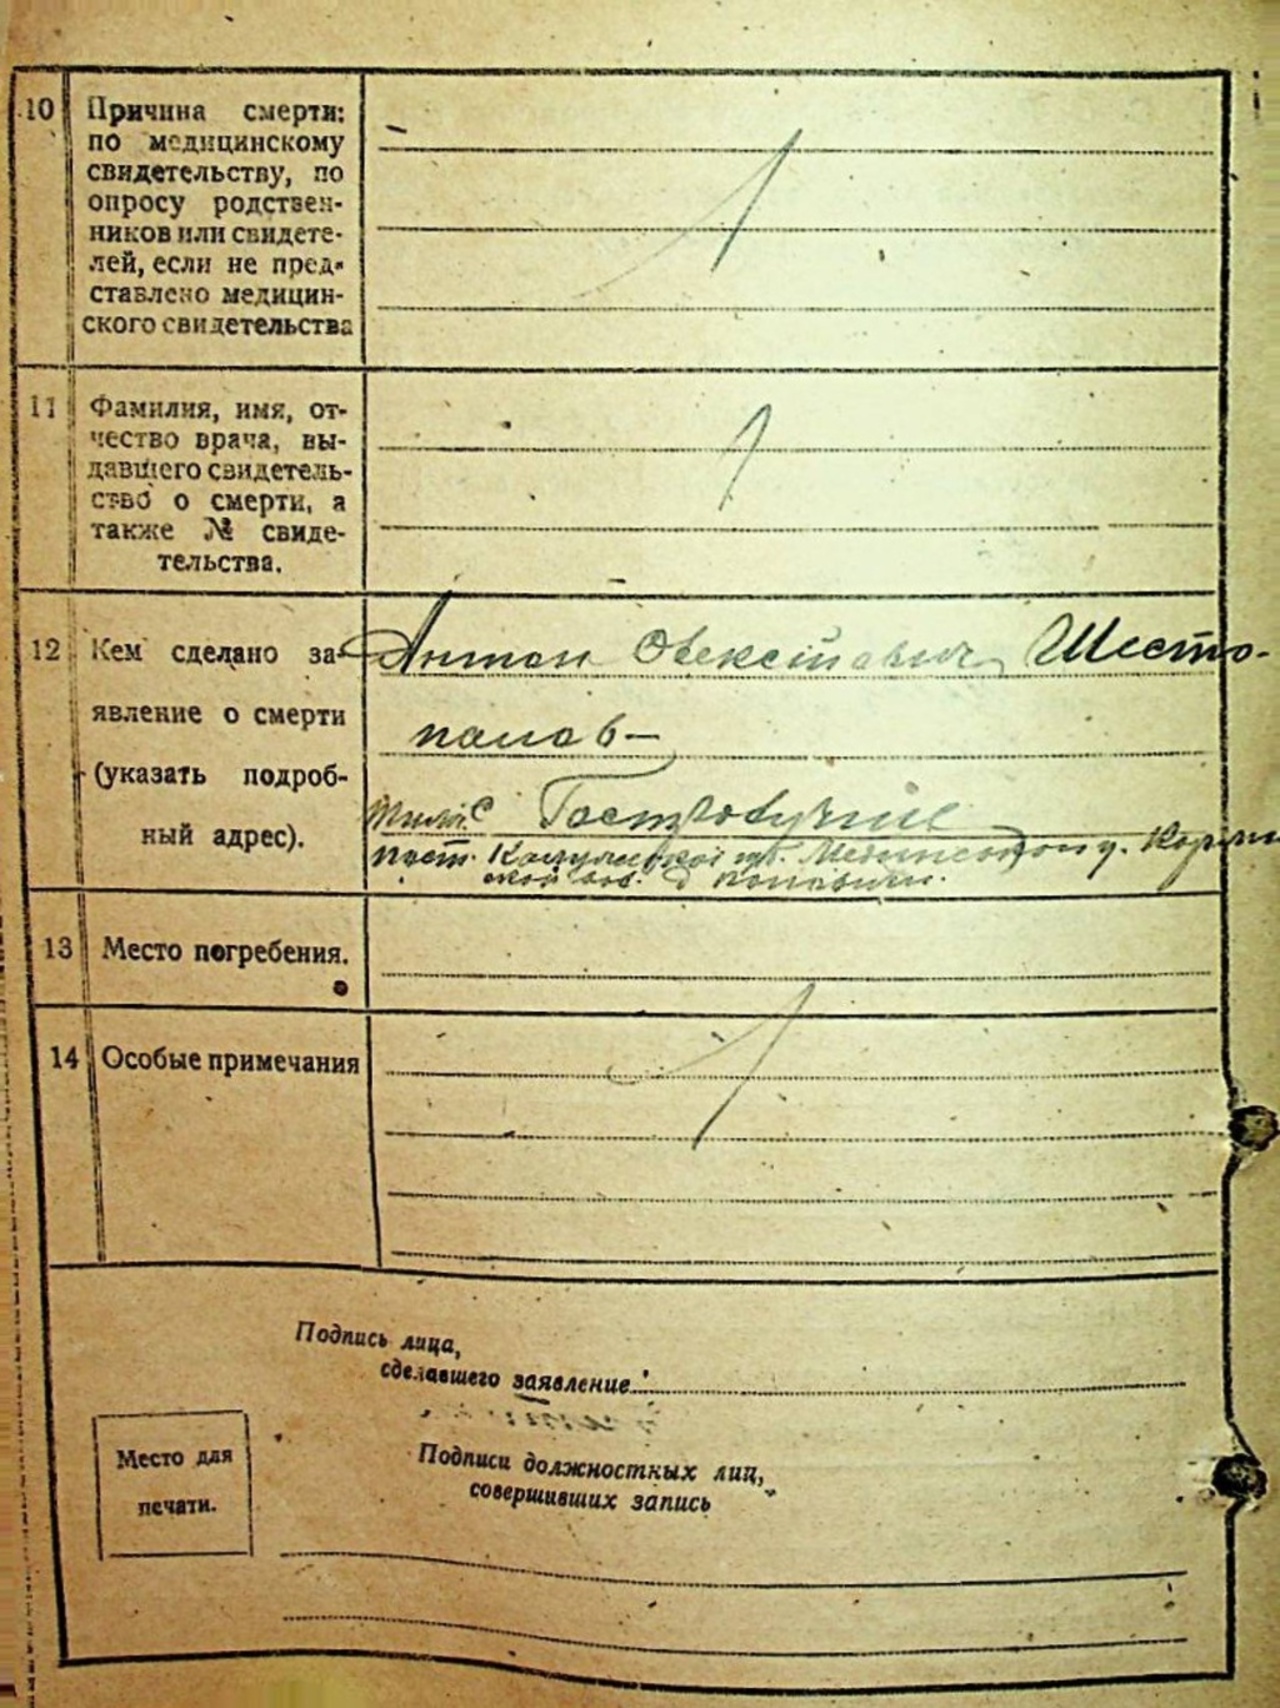 10 Причина смерти:
по медицинскому
свидетельству, по
опросу родствен-
ников или свидете-
лей, если не пред-
ставлено медицин-
ского свидетельства
11 Фамилия, имя, от-
чество врача, вы-
давшего свидетель-
ство о смерти, а
также № свиде-
тельства.
12 Кем сделано за-
явление о смерти
(указать подроб-
ный адрес).
Антон Шесто-
палов
пост.
13 Место погребения.
14 Особые примечания
Подпись лица,
сделавшего заявление
Место для
печати.
Подписи должностных лиц,
совершивших запись